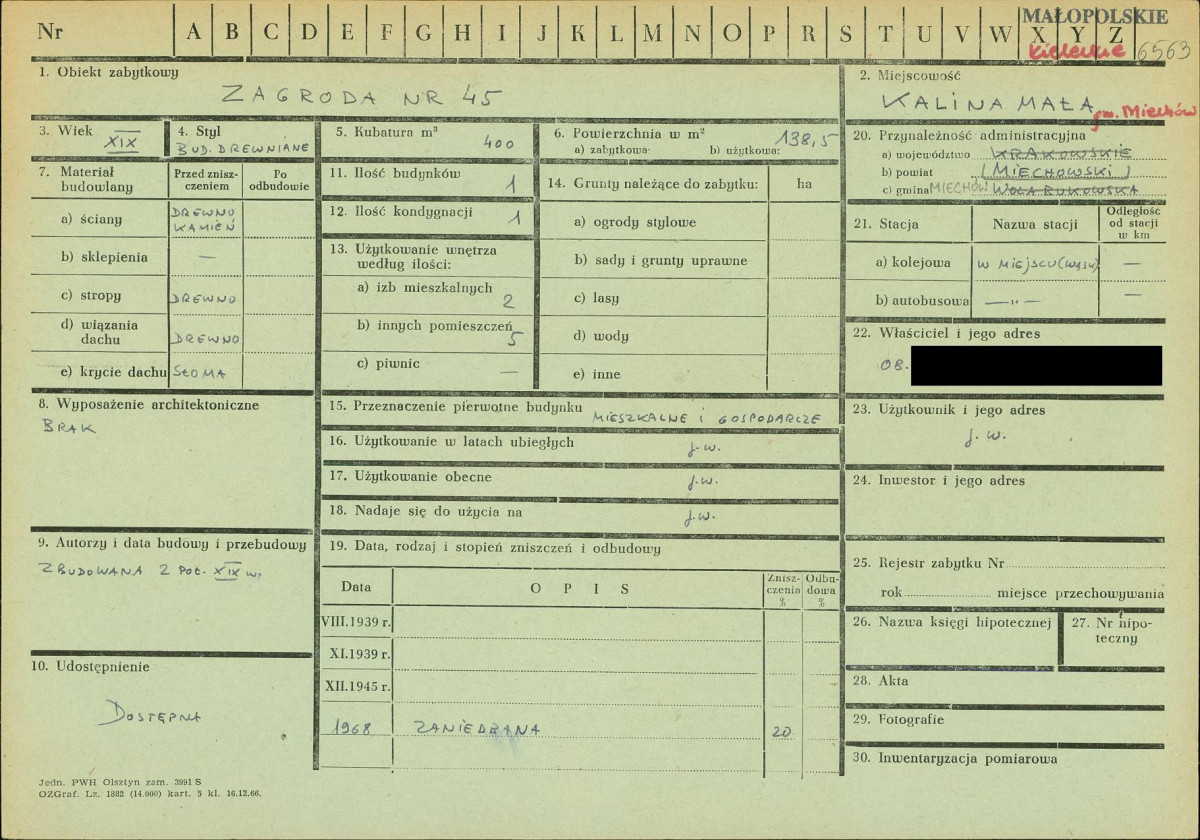 Nr A B C D E F G H I J K L M N O P R S T U V W X Y Z
MAŁOPOLSKIE
kieleckie 6563
1. Obiekt zabytkowy
ZAGRODA NR 45
2. Miejscowość
KALINA MAŁA gm. Miechów
3. Wiek
XIX
4. Styl
BUD. DREWNIANE
5. Kubatura m³
400
6. Powierzchnia w m²
138,5
a) zabytkowa: b) użytkowa:
7. Materiał budowlany
Przed zniszczeniem
Po odbudowie
a) ściany
DREWNO
KAMIEŃ
b) sklepienia —
c) stropy DREWNO
d) wiązania dachu DREWNO
e) krycie dachu SŁOMA
8. Wyposażenie architektoniczne
BRAK
9. Autorzy i data budowy i przebudowy
ZBUDOWANA 2 POŁ. XIX w.
10. Udostępnienie
DOSTĘPNA
11. Ilość budynków
1
12. Ilość kondygnacji
1
13. Użytkowanie wnętrza
według ilości:
a) izb mieszkalnych
2
b) innych pomieszczeń
5
c) piwnic —
14. Grunty należące do zabytku: ha
a) ogrody stylowe
b) sady i grunty uprawne
c) lasy
d) wody
e) inne
15. Przeznaczenie pierwotne budynku MIESZKALNE I GOSPODARCZE
16. Użytkowanie w latach ubiegłych j.w.
17. Użytkowanie obecne j.w.
18. Nadaje się do użycia na j.w.
19. Data, rodzaj i stopień zniszczeń i odbudowy
Data OPIS Zniszczenia % Odbudowa %
VIII.1939 r.
XI.1939 r.
XII.1945 r.
1968 ZANIEDBANA 20
20. Przynależność administracyjna
a) województwo KRAKOWSKIE
b) powiat (MIECHOWSKI)
c) gmina MIECHÓW WOLA BUKOWSKA
21. Stacja Nazwa stacji Odległość od stacji w km
a) kolejowa W MIEJSCU (WĄSK) —
b) autobusowa —„— —
22. Właściciel i jego adres
OB.
23. Użytkownik i jego adres
j.w.
24. Inwestor i jego adres
25. Rejestr zabytku Nr
rok miejsce przechowywania
26. Nazwa księgi hipotecznej
27. Nr hipoteczny
28. Akta
29. Fotografie
30. Inwentaryzacja pomiarowa
Jedn. PWH Olsztyn zam. 3991 S
OZGraf. Lz. 1882 (14.000) kart. 5 kl. 16.12.66.